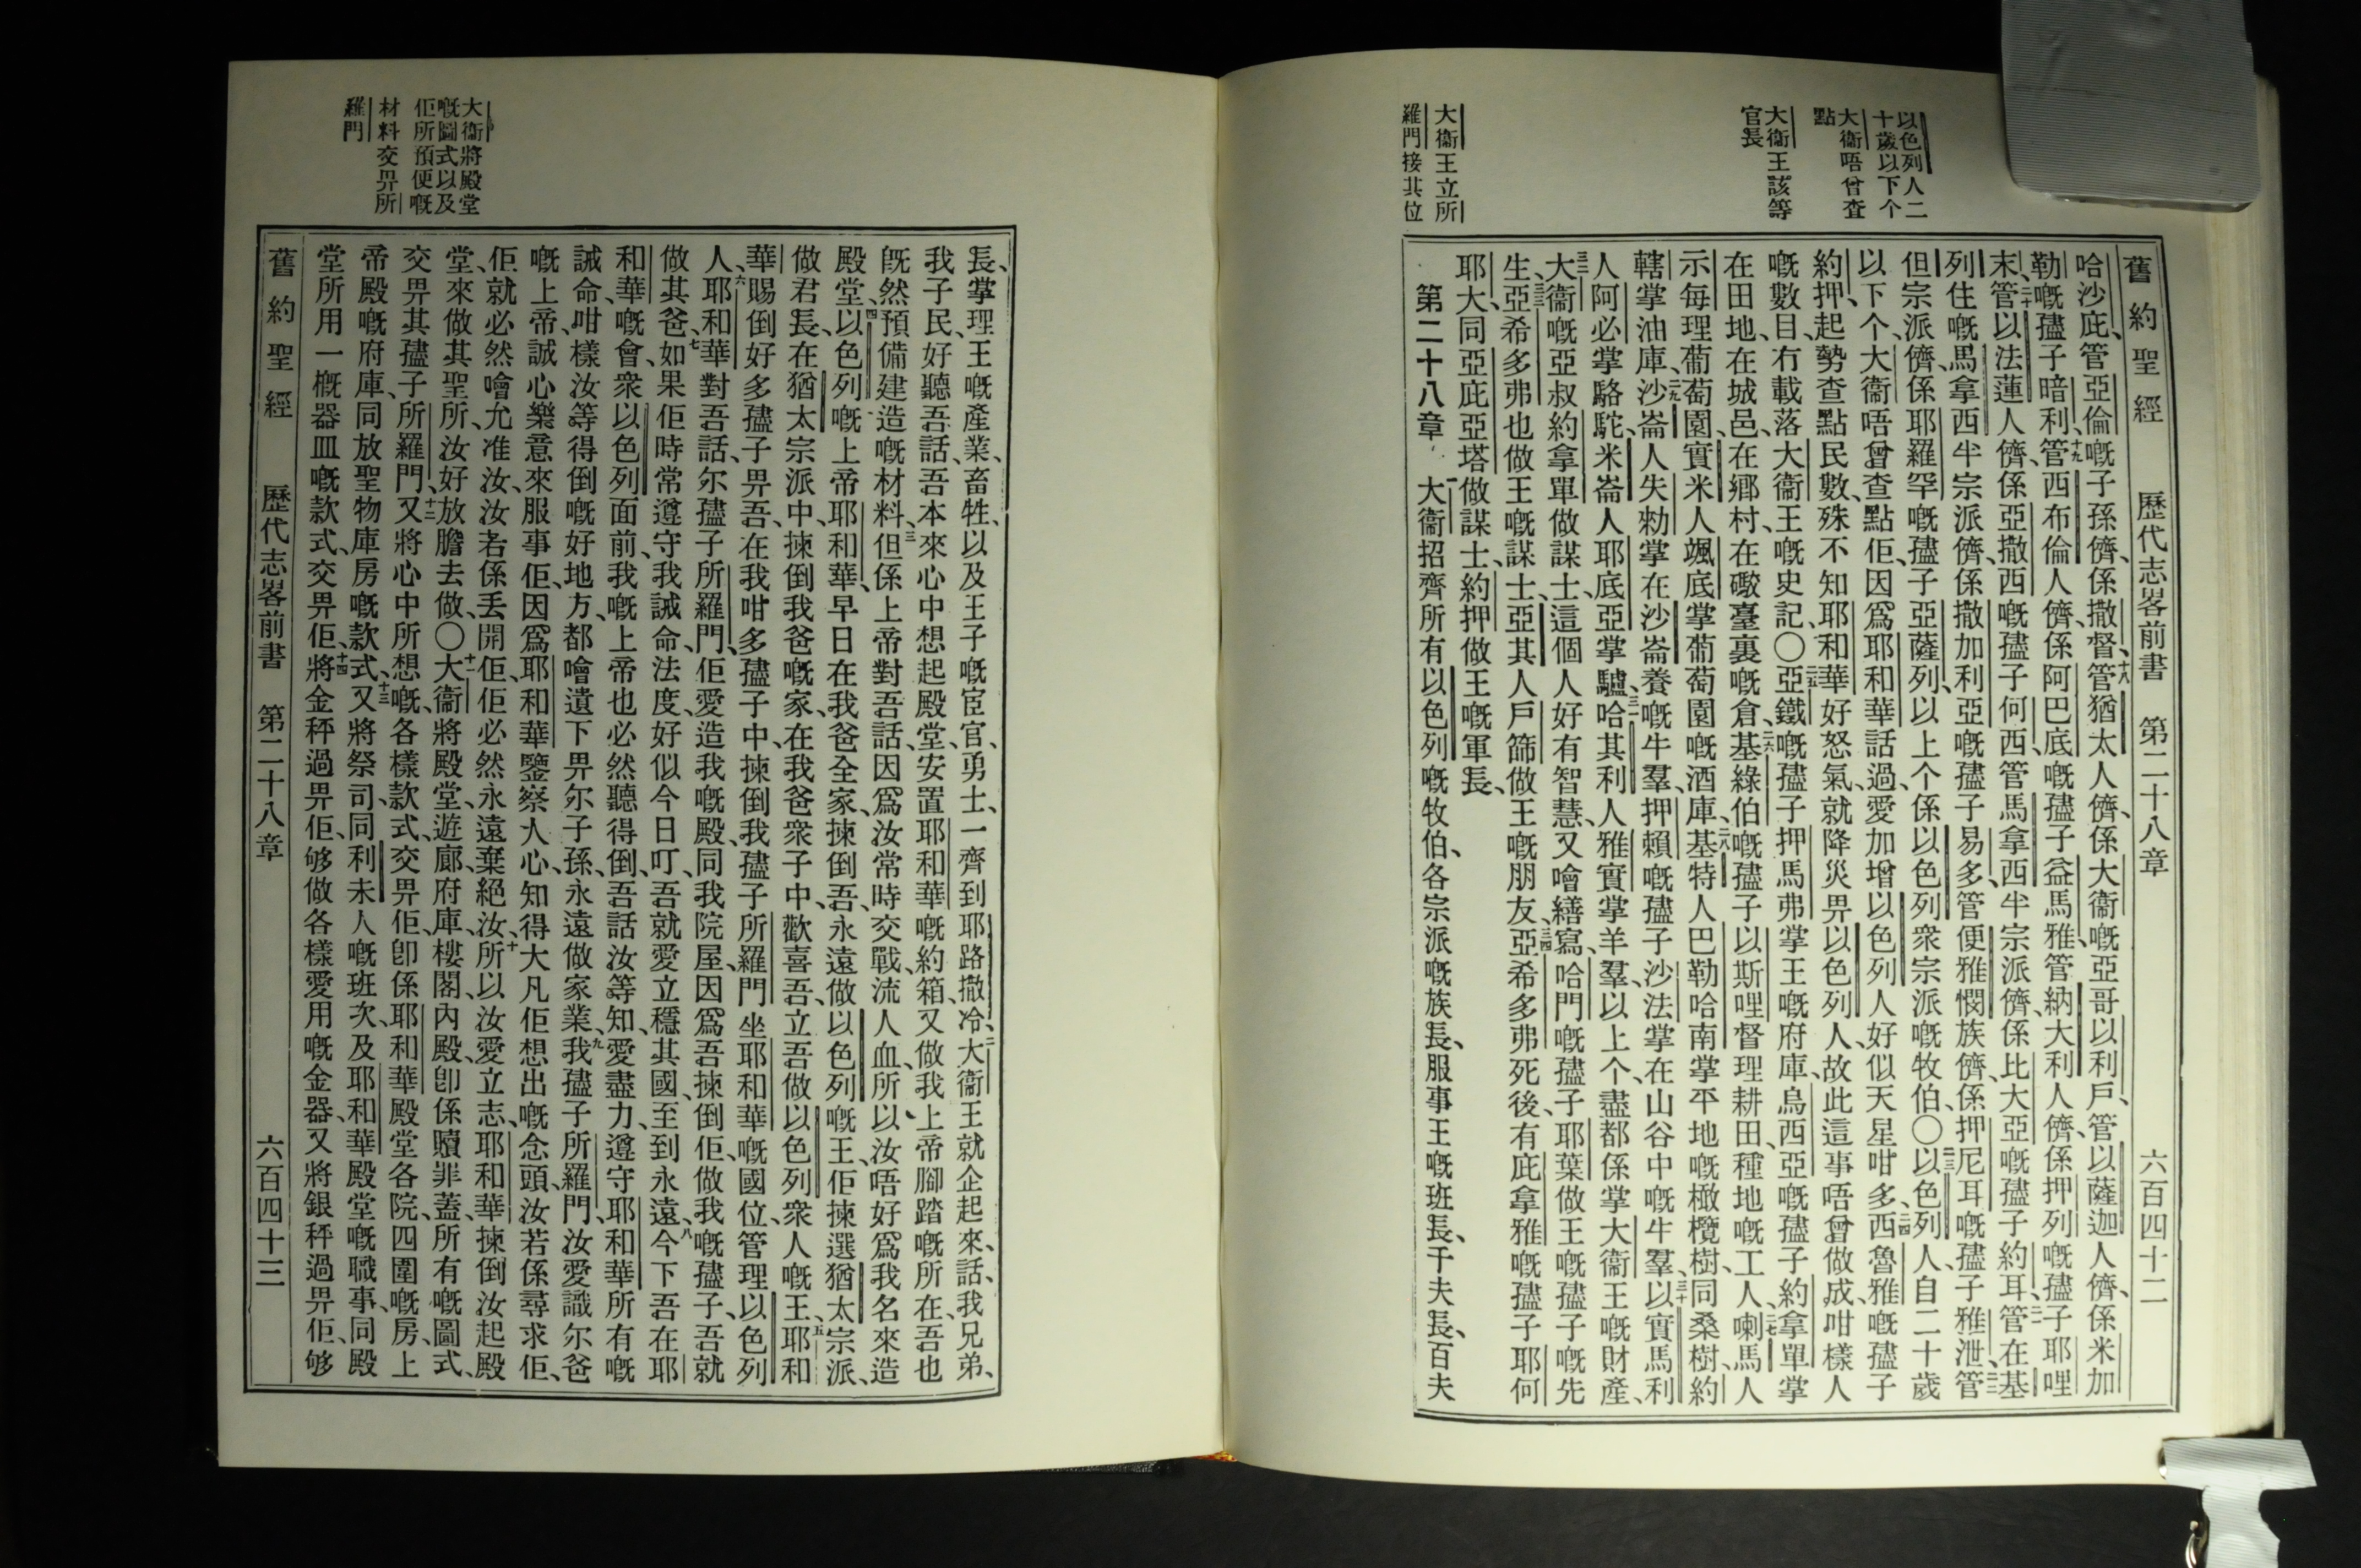 以色列人二
十歲以下个
大衞唔曾查
點
大衞王該等
官長
大衞王立所
羅門接其位
舊約聖經 歷代志畧前書 第二十八章 六百四十二
哈沙庇、管亞倫嘅子孫儕、係撒督、十八管猶太人儕、係大衞嘅亞哥以利戶、管以薩迦人儕、係米加
勒嘅孻子暗利、十九管西布倫人儕、係阿巴底嘅孻子益馬雅、管納大利人儕、係押列嘅孻子耶哩
末、二十管以法蓮人儕、係亞撒西嘅孻子何西、管馬拿西半宗派儕、係比大亞嘅孻子約耳、二一管在基
列住嘅馬拿西半宗派儕、係撒加利亞嘅孻子易多、管便雅憫族儕、係押尼耳嘅孻子雅泄、二二管
但宗派儕、係耶羅罕嘅孻子亞薩列、以上个係以色列衆宗派嘅牧伯、〇二三以色列人自二十歲
以下个、大衞唔曾查點佢、因爲耶和華話過、愛加增以色列人、好似天星咁多、二四西魯雅嘅孻子
約押、起勢查點民數、殊不知耶和華好怒氣、就降災畀以色列人、故此這事唔曾做成、咁樣人
嘅數目、冇載落大衞王嘅史記、〇二五亞鐵嘅孻子押馬弗掌王嘅府庫、烏西亞嘅孻子約拿單掌
在田地、在城邑、在鄉村、在礮臺裏嘅倉、二六基綠伯嘅孻子以斯哩督理耕田、種地嘅工人、二七喇馬人
示每理葡萄園、實米人颯底掌葡萄園嘅酒庫、二八基特人巴勒哈南掌平地嘅橄欖樹、同桑樹、約
轄掌油庫、二九沙崙人失勑掌在沙崙養嘅牛羣、押賴嘅孻子沙法掌在山谷中嘅牛羣、三十以實馬利
人阿必掌駱駝、米崙人耶底亞掌驢、三一哈其利人雅實掌羊羣、以上个盡都係掌大衞王嘅財產、
三二大衞嘅亞叔約拿單做謀士、這個人好有智慧、又噲繕寫、哈門嘅孻子耶葉做王嘅孻子嘅先
生、三三亞希多弗也做王嘅謀士、亞其人戶篩做王嘅朋友、三四亞希多弗死後、有庇拿雅嘅孻子耶何
耶大、同亞庇亞塔做謀士、約押做王嘅軍長、
第二十八章 一大衞招齊所有以色列嘅牧伯、各宗派嘅族長、服事王嘅班長、千夫長、百夫
大衞將殿堂
嘅圖式以及
佢所預便嘅
材料交畀所
羅門
長、掌理王嘅產業、畜牲、以及王子嘅宦官、勇士、一齊到耶路撒冷、二大衞王就企起來、話、我兄弟、
我子民、好聽吾話、吾本來心中想起殿堂、安置耶和華嘅約箱、又做我上帝腳踏嘅所在、吾也
旣然預備建造嘅材料、三但係上帝對吾話、因爲汝常時交戰、流人血、所以汝唔好爲我名來造
殿堂、四以色列嘅上帝耶和華、早日在我爸全家、揀倒吾、永遠做以色列嘅王、佢揀選猶太宗派、
做君長、在猶太宗派中、揀倒我爸嘅家、在我爸衆子中、歡喜吾、立吾做以色列衆人嘅王、五耶和
華賜倒好多孻子畀吾、在我咁多孻子中、揀倒我孻子所羅門坐耶和華嘅國位、管理以色列
人、六耶和華對吾話、尔孻子所羅門、佢愛造我嘅殿、同我院屋、因爲吾揀倒佢、做我嘅孻子、吾就
做其爸、七如果佢時常遵守、我誡命、法度、好似今日叮、吾就愛立穩其國、至到永遠、八今下吾在耶
和華嘅會衆以色列面前、我嘅上帝也必然聽得倒、吾話汝等知、愛盡力、遵守耶和華所有嘅
誡命、咁樣汝等得倒嘅好地方、都噲遺下畀尔子孫、永遠做家業、九我孻子所羅門、汝愛識尔爸
嘅上帝、誠心樂意來服事佢、因爲耶和華鑒察人心、知得大凡佢想出嘅念頭、汝若係尋求佢、
佢就必然噲允准汝、汝若係丟開佢、佢必然永遠棄絕汝、十所以汝愛立志、耶和華揀倒汝起殿
堂、來做其聖所、汝好放膽去做、〇十一大衞將殿堂、遊廊、府庫、樓閣、內殿、卽係贖罪蓋、所有嘅圖式、
交畀其孻子所羅門、十二又將心中所想嘅、各樣款式、交畀佢、卽係耶和華殿堂各院、四圍嘅房、上
帝殿嘅府庫、同放聖物庫房嘅款式、十三又將祭司、同利未人嘅班次、及耶和華殿堂嘅職事、同殿
堂所用一概器皿嘅款式、交畀佢、十四將金秤過畀佢、够做各樣愛用嘅金器、又將銀秤過畀佢、够
舊約聖經 歷代志畧前書 第二十八章 六百四十三